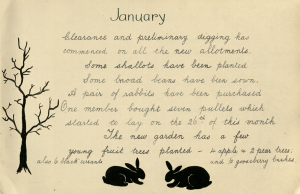 January
Clearance and preliminary digging has
commenced on all the new allotments.
Some shallots have been planted
Some broad beans have been sown.
A pair of rabbits have been purchased
One member bought seven pullets which
started to lay on the 26th of this month
The new garden has a few
young fruit trees planted - 4 apple & 2 pear trees.
also 12 black currants and 12 gooseberry bushes